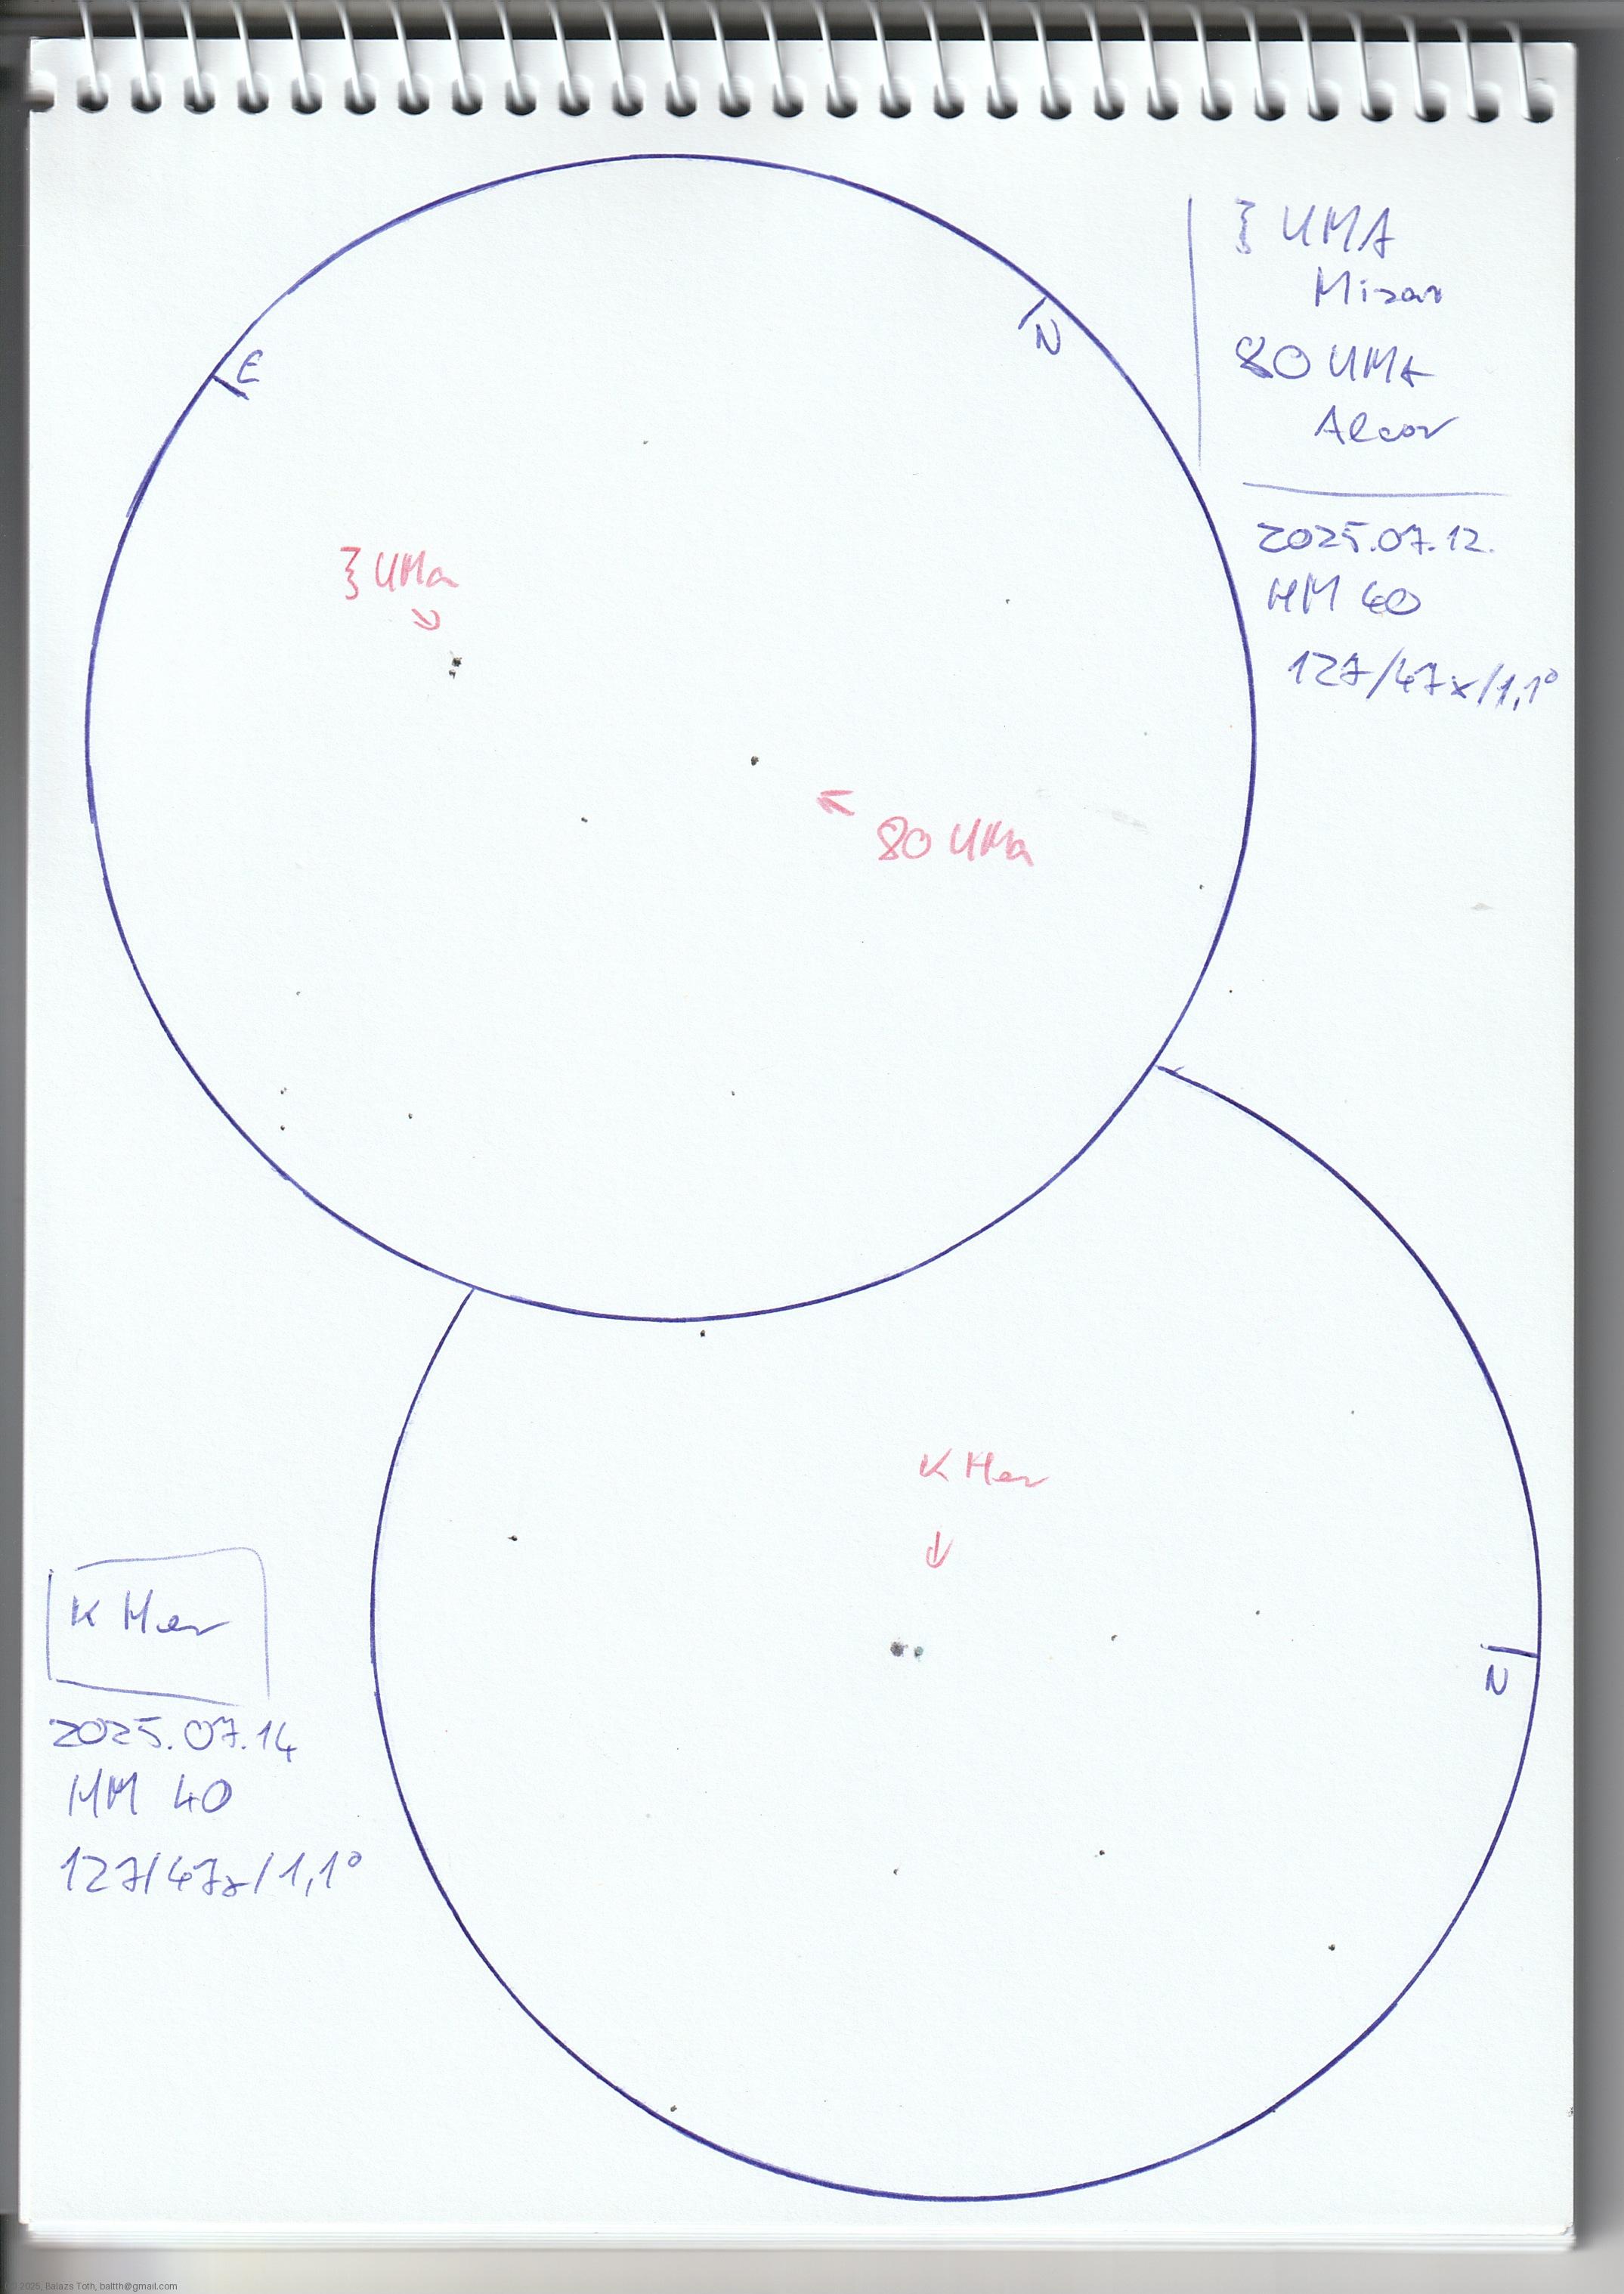 ζ UMA
Mizar
80 UMa
Alcor
2025.07.12.
HM 40
127/47x/1,1°
N
E
ζ UMa
80 UMa
κ Her
N
κ Her
2025.07.14
HM 40
127/47x/1,1°
2025, Balazs Toth, baltth@gmail.com